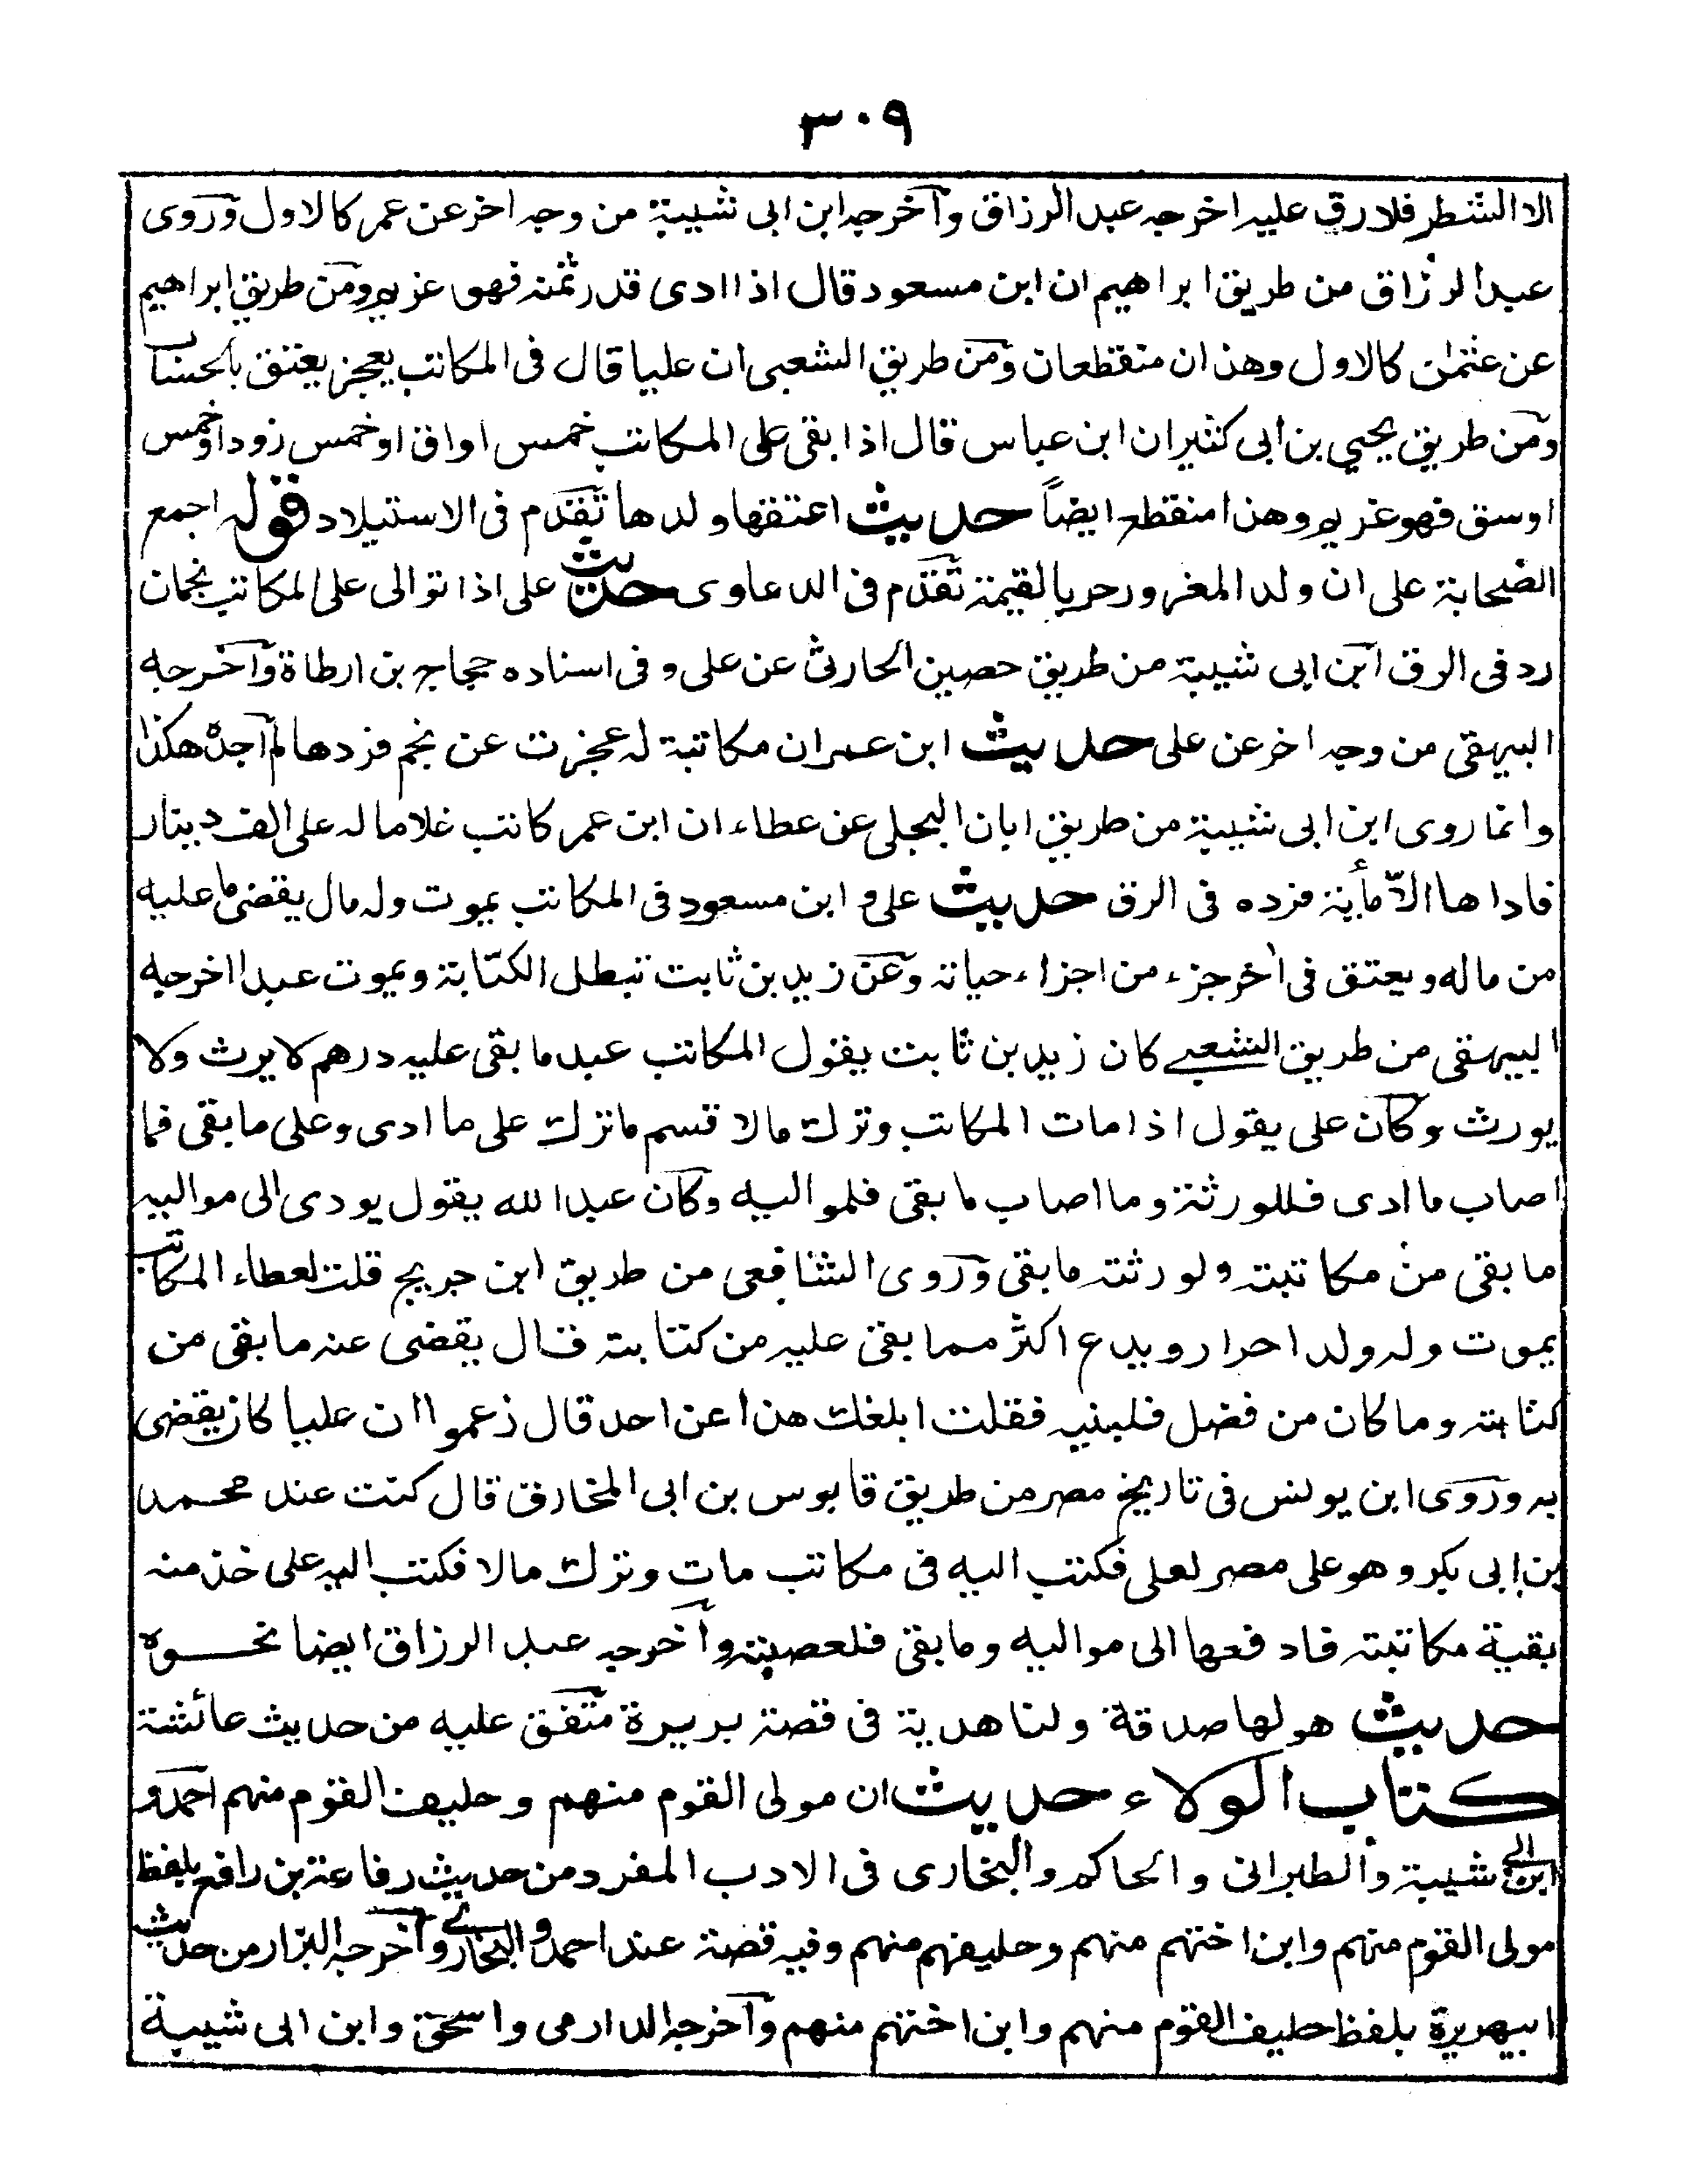 ٣٠٩
الا الشطر فلا رق عليه اخرجه عبد الرزاق وآخرجه ابن ابى شيبة من وجه اخر عن عمر كالاول وروى
عبد الرزاق من طريق ابراهيم ان ابن مسعود قال اذا ادى قدر ثمنه فهو غريم ومن طريق ابراهيم
عن عثمٰن كالاول وهذان منقطعان ومن طريق الشعبى ان عليا قال فى المكاتب يعجز يعتق بالحساب
ومن طريق يحيى بن ابى كثير ان ابن عباس قال اذا بقى على المكاتب خمس اواق او خمس زود او خمس
اوسق فهو غريم وهذا منقطع ايضاً حديث اعتقها ولدها تقدم فى الاستيلاد قوله اجمع
الصحابة على ان ولد المغرور حر بالقيمة تقدم فى الدعاوى حديث على اذا توالى على المكاتب نجمان
رد فى الرق ابن ابى شيبة من طريق حصين الحارثى عن على و فى اسناده حجاج بن ارطاة وآخرجه
البيهقى من وجه اخر عن على حديث ابن عمر ان مكاتبة له عجزت عن نجم فردها لم اجده هكذا
وانما روى ابن ابى شيبة من طريق ابان البجلى عن عطاء ان ابن عمر كاتب غلاما له على الف دينار
فاداها الا مأية فرده فى الرق حديث على و ابن مسعود فى المكاتب يموت وله مال يقضى ما عليه
من ماله و يعتق فى اخر جزء من اجزاء حياته وعن زيد بن ثابت تبطل الكتابة ويموت عبدا اخرجه
البيهقى من طريق الشعبے كان زيد بن ثابت يقول المكاتب عبد ما بقى عليه درهم لا يرث ولا
يورث وكان على يقول اذا مات المكاتب وترك مالا قسم ما ترك على ما ادى وعلى ما بقى فما
اصاب ما ادى فللورثة وما اصاب ما بقى فلمواليه وكان عبد الله يقول يودى الى مواليه
ما بقى من مكاتبته ولورثته ما بقى وروى الشافعى من طريق ابن جريج قلت لعطاء المكاتب
يموت وله ولد احرار ويدع اكثر مما بقى عليه من كتابته قال يقضى عنه ما بقى من
كتابته وما كان من فضل فلبنيه فقلت ابلغك هذا عن احد قال زعموا ان عليا كان يقضى
به وروى ابن يونس فى تاريخ مصر من طريق قابوس بن ابى المخارق قال كنت عند محمد
بن ابى بكر وهو على مصر لعلى فكتب اليه فى مكاتب مات وترك مالا فكتب اليه على خذ منه
بقية مكاتبته فادفعها الى مواليه وما بقى فلعصبته وآخرجه عبد الرزاق ايضا نحوه
حديث هو لها صدقة ولنا هدية فى قصة بريرة متفق عليه من حديث عائشة
كتاب الولاء حديث ان مولى القوم منهم وحليف القوم منهم احمد و
ابن ابى شيبة والطبرانى والحاكم والبخارى فى الادب المفرد من حديث رفاعة بن رافع بلفظ
مولى القوم منهم وابن اختهم منهم وحليفهم منهم وفيه قصة عند احمد والبخارے وآخرجه البزار من حديث
ابيهريرة بلفظ حليف القوم منهم وابن اختهم منهم وآخرجه الدارمى واسحق وابن ابى شيبة